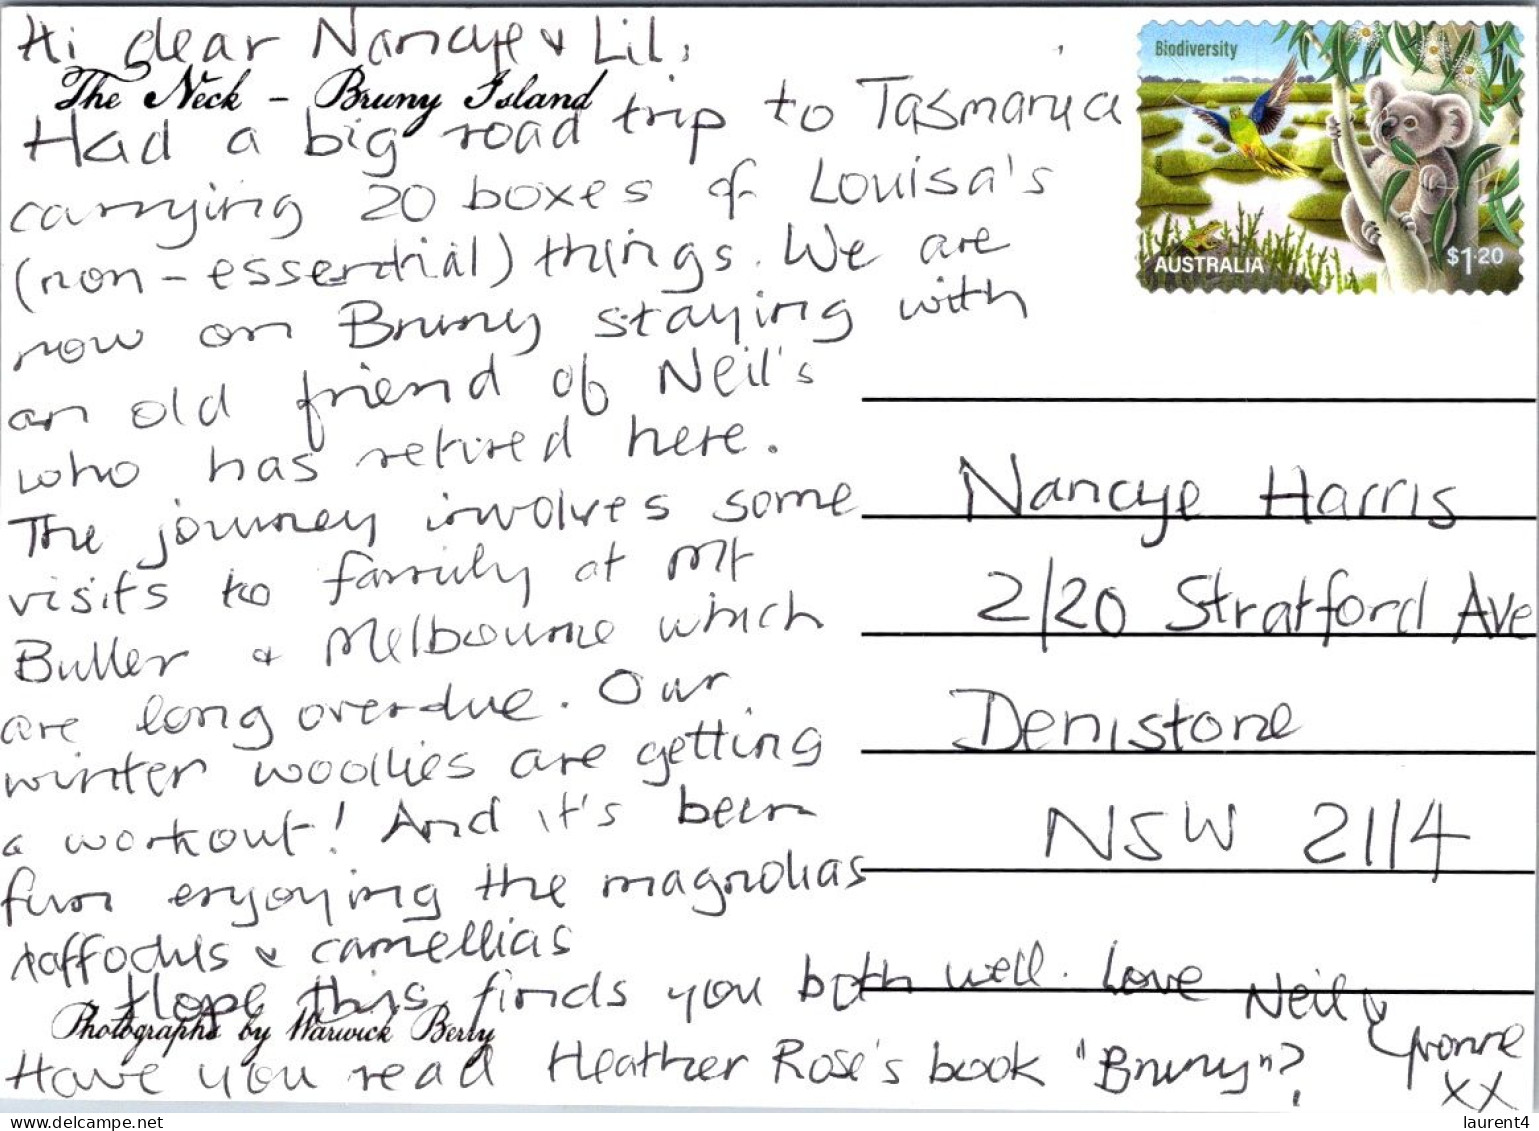 Hi dear Nancye & Lil,
The Neck - Bruny Island
Had a big road trip to Tasmania
carrying 20 boxes of Louisa's
(non-essential) things. We are
now on Bruny staying with
an old friend of Neil's
who has retired here.
The journey involves some
visits to family at Mt
Buller & Melbourne which
are long overdue. Our
winter woollies are getting
a workout! And it's been
fun enjoying the magnolias
daffodils & camellias
Hope this finds you both well. Love Neil &
Yvonne
xx
Photographs by Warwick Berry
Have you read Heather Rose's book "Bruny"?
Biodiversity
AUSTRALIA
$1.20
Nancye Harris
2/20 Stratford Ave
Denistone
NSW 2114
delcampe.net
laurent4